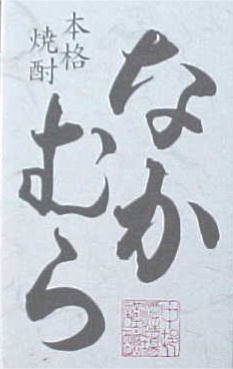 本格
焼酎
なか
むら